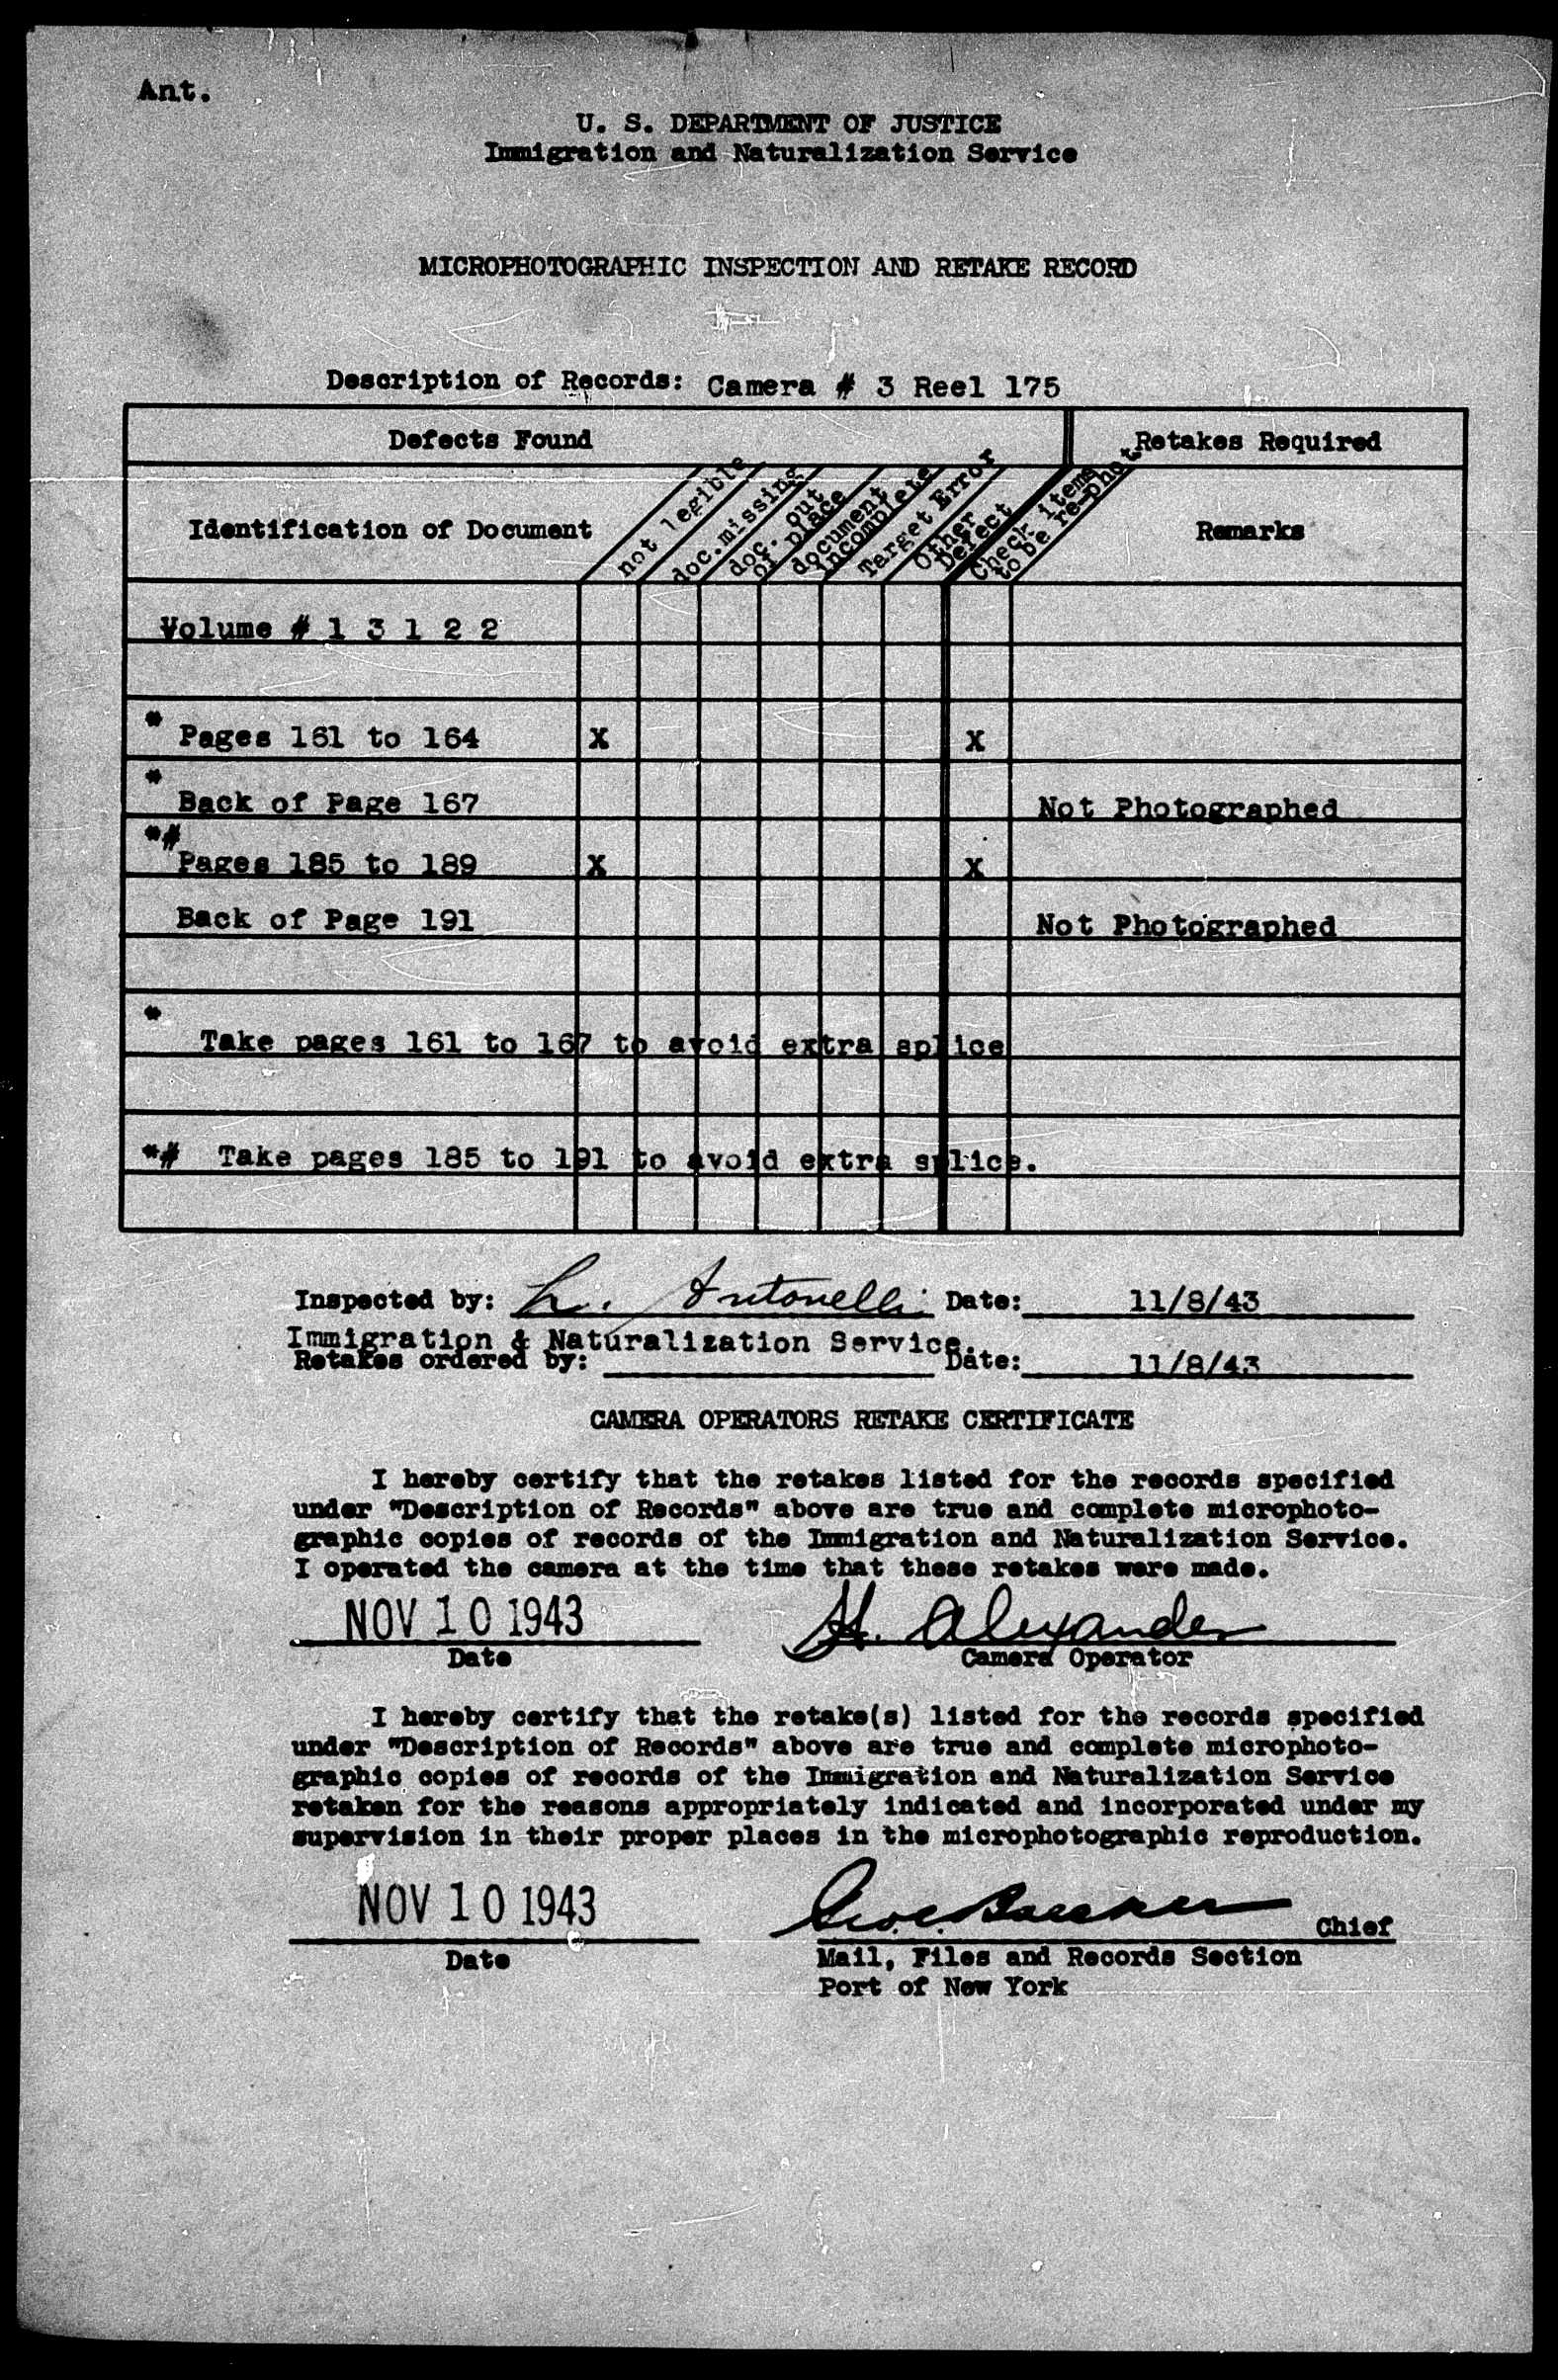 Ant.
U. S. DEPARTMENT OF JUSTICE
Immigration and Naturalization Service
MICROPHOTOGRAPHIC INSPECTION AND RETAKE RECORD
Description of Records: Camera # 3 Reel 175
Defects Found
Retakes Required
Identification of Document
not legible
doc.missing
doc. out
of place
document
incomplete
Target Error
Other
Defect
Check items
to be re-phot.
Remarks
Volume # 1 3 1 2 2
* Pages 161 to 164 X X
* Back of Page 167 Not Photographed
*# Pages 185 to 189 X X
Back of Page 191 Not Photographed
* Take pages 161 to 167 to avoid extra splice
*# Take pages 185 to 191 to avoid extra splice.
Inspected by: L. Antonelli Date: 11/8/43
Immigration & Naturalization Service.
Retakes ordered by: Date: 11/8/43
CAMERA OPERATORS RETAKE CERTIFICATE
I hereby certify that the retakes listed for the records specified
under "Description of Records" above are true and complete microphoto-
graphic copies of records of the Immigration and Naturalization Service.
I operated the camera at the time that these retakes were made.
NOV 10 1943 H. Alexander
Date Camera Operator
I hereby certify that the retake(s) listed for the records specified
under "Description of Records" above are true and complete microphoto-
graphic copies of records of the Immigration and Naturalization Service
retaken for the reasons appropriately indicated and incorporated under my
supervision in their proper places in the microphotographic reproduction.
NOV 10 1943 Chief
Date Mail, Files and Records Section
Port of New York